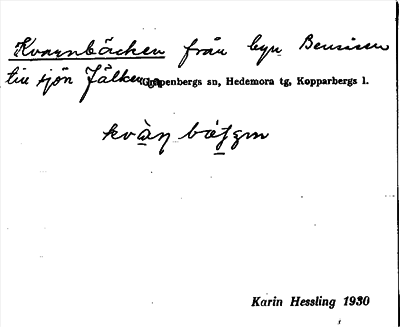 Kvarnbäcken från byn Bensisen
till sjön Fälken Garpenbergs sn, Hedemora tg, Kopparbergs l.
Karin Hessling 1930